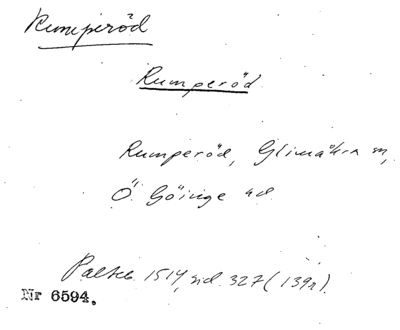 Rumperöd
Rumperöd
Rumperöd, Glimåkra sn,
Ö. Göinge hd
Palteb 1514, sid. 327 (139r).
Nr 6594.